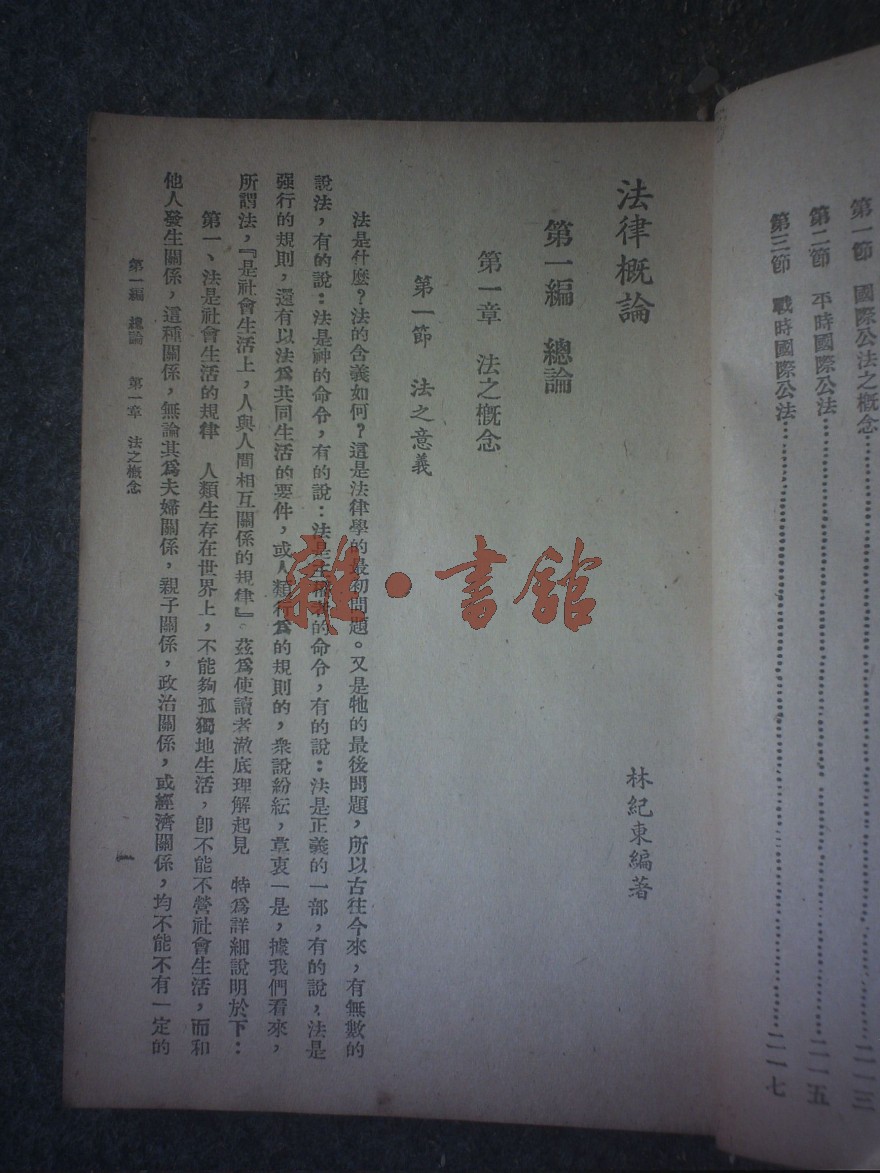 第一節　國際公法之概念……………………二一三
第二節　平時國際公法……………………二一五
第三節　戰時國際公法……………………二一七
法律概論
林紀東編著
第一編　總論
第一章　法之概念
第一節　法之意義
法是什麼？法的含義如何？這是法律學的最初問題。又是牠的最後問題，所以古往今來，有無數的
說法，有的說：法是神的命令，有的說：法是主權者的命令，有的說：法是正義的一部，有的說，法是
强行的規則，還有以法爲共同生活的要件，或人類行爲的規則的，衆說紛紜，莫衷一是，據我們看來，
所謂法，『是社會生活上，人與人間相互關係的規律』。茲爲使讀者澈底理解起見　特爲詳細說明於下：
第一、法是社會生活的規律　人類生存在世界上，不能夠孤獨地生活，卽不能不營社會生活，而和
他人發生關係，這種關係，無論其爲夫婦關係，親子關係，政治關係，或經濟關係，均不能不有一定的
第一編　總論　第一章　法之概念
一
雜·書館